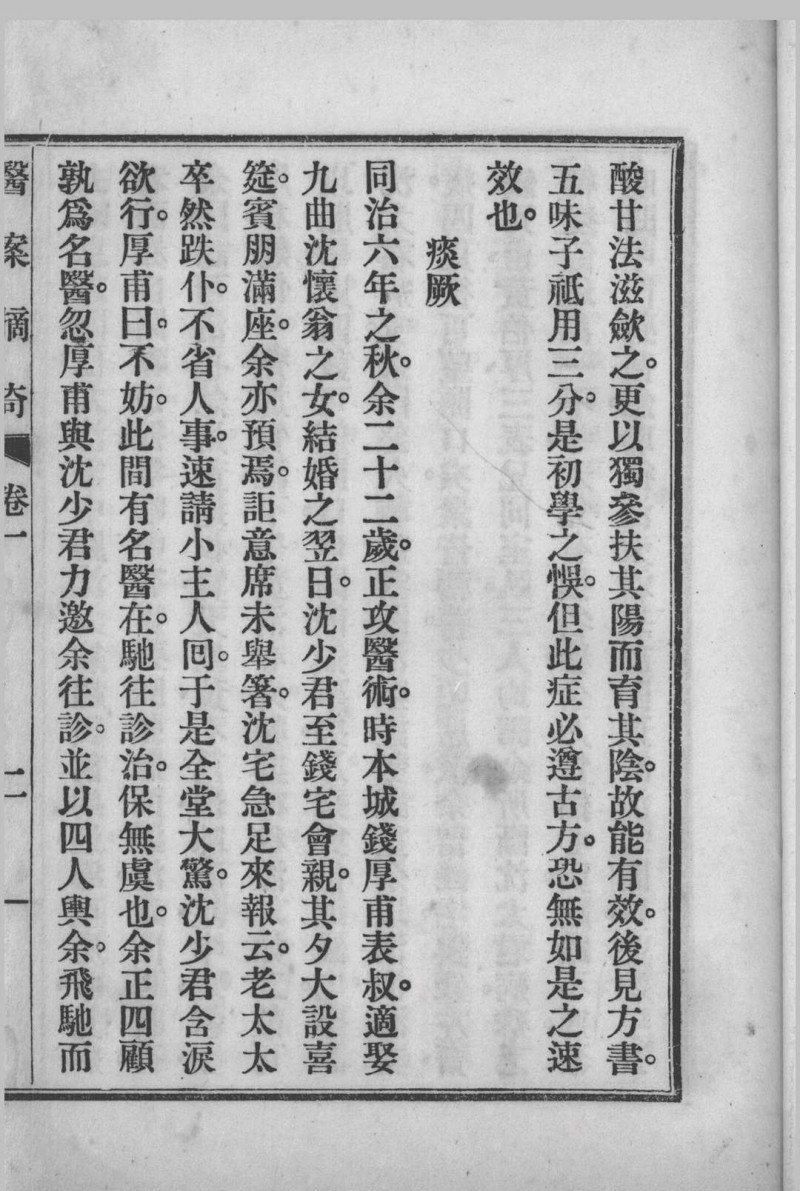 酸甘法滋歛之。更以獨參扶其陽而育其陰。故能有效。後見方書。
五味子祗用三分。是初學之悞。但此症必遵古方。恐無如是之速
效也。
痰厥
同治六年之秋。余二十二歲。正攻醫術。時本城錢厚甫表叔。適娶
九曲沈懷翁之女。結婚之翌日。沈少君至錢宅會親。其夕大設喜
筵。賓朋滿座。余亦預焉。詎意席未舉箸。沈宅急足來報云。老太太
卒然跌仆。不省人事。速請小主人囘。于是全堂大驚。沈少君含淚
欲行。厚甫曰。不妨。此間有名醫在。馳往診治。保無虞也。余正四顧
孰爲名醫。忽厚甫與沈少君力邀余往診。並以四人輿余。飛馳而
醫案摘奇 卷一 二